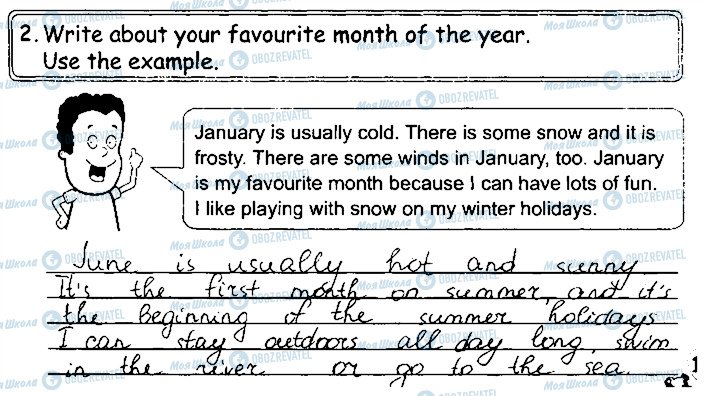 2. Write about your favourite month of the year.
Use the example.
January is usually cold. There is some snow and it is
frosty. There are some winds in January, too. January
is my favourite month because I can have lots of fun.
I like playing with snow on my winter holidays.
June is usually hot and sunny
It's the first month on summer, and it's
the beginning of the summer holidays
I can stay outdoors all day long, swim
in the river or go to the sea
Моя Школа OBOZREVATEL